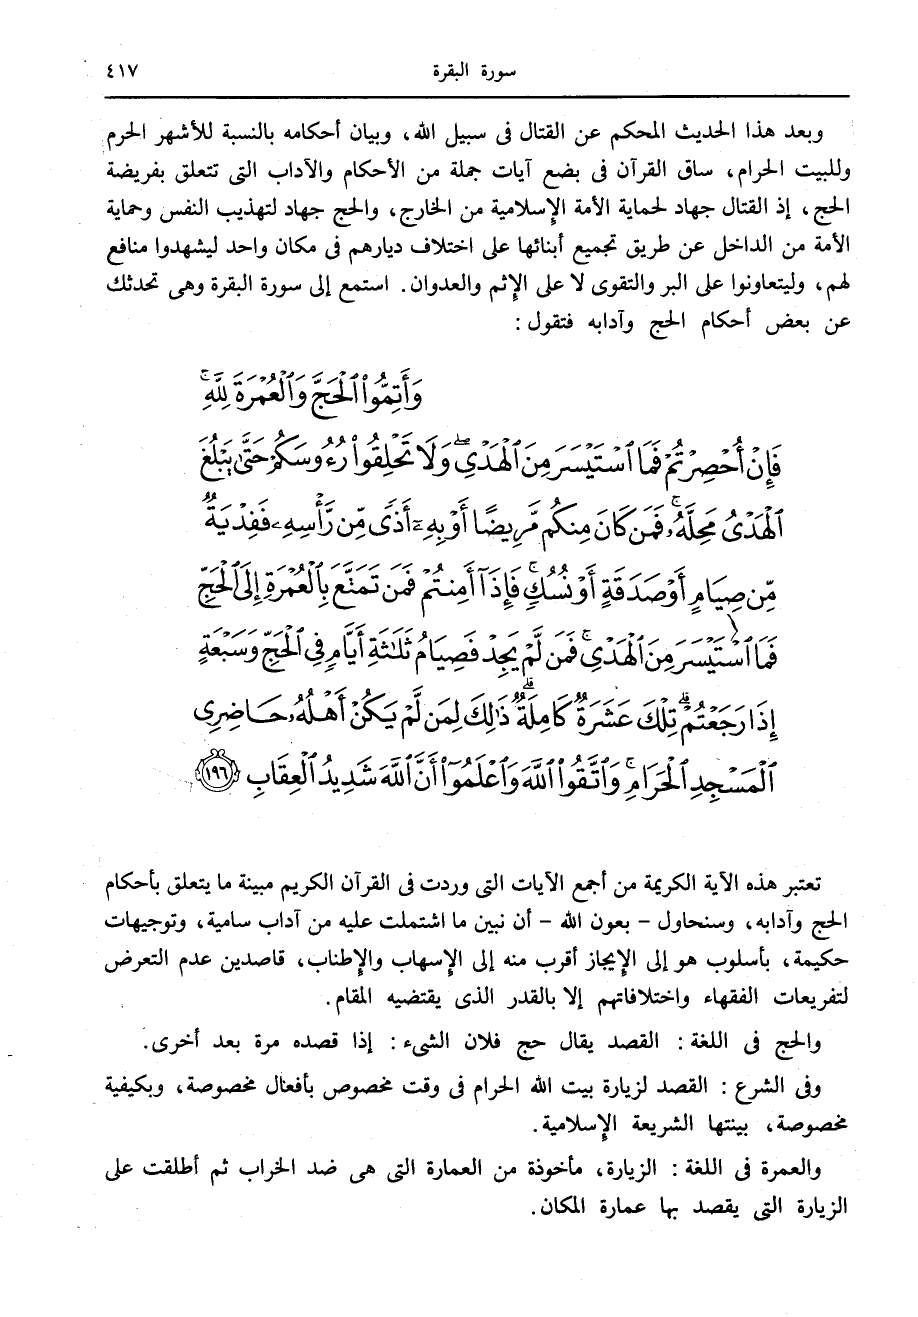 سورة البقرة ٤١٧
وبعد هذا الحديث المحكم عن القتال فى سبيل الله، وبيان أحكامه بالنسبة للأشهر الحرم
وللبيت الحرام، ساق القرآن فى بضع آيات جملة من الأحكام والآداب التى تتعلق بفريضة
الحج، إذ القتال جهاد لحماية الأمة الإسلامية من الخارج، والحج جهاد لتهذيب النفس وحماية
الأمة من الداخل عن طريق تجميع أبنائها على اختلاف ديارهم فى مكان واحد ليشهدوا منافع
لهم، وليتعاونوا على البر والتقوى لا على الإثم والعدوان. استمع إلى سورة البقرة وهى تحدثك
عن بعض أحكام الحج وآدابه فتقول :
وَأَتِمُّواْ ٱلْحَجَّ وَٱلْعُمْرَةَ لِلَّهِۚ
فَإِنْ أُحْصِرْتُمْ فَمَا ٱسْتَيْسَرَ مِنَ ٱلْهَدْيِۖ وَلَا تَحْلِقُواْ رُءُوسَكُمْ حَتَّىٰ يَبْلُغَ
ٱلْهَدْىُ مَحِلَّهُۥۚ فَمَن كَانَ مِنكُم مَّرِيضًا أَوْ بِهِۦٓ أَذًى مِّن رَّأْسِهِۦ فَفِدْيَةٌ
مِّن صِيَامٍ أَوْ صَدَقَةٍ أَوْ نُسُكٍۚ فَإِذَآ أَمِنتُمْ فَمَن تَمَتَّعَ بِٱلْعُمْرَةِ إِلَى ٱلْحَجِّ
فَمَا ٱسْتَيْسَرَ مِنَ ٱلْهَدْيِۚ فَمَن لَّمْ يَجِدْ فَصِيَامُ ثَلَٰثَةِ أَيَّامٍ فِي ٱلْحَجِّ وَسَبْعَةٍ
إِذَا رَجَعْتُمْۗ تِلْكَ عَشَرَةٌ كَامِلَةٌۗ ذَٰلِكَ لِمَن لَّمْ يَكُنْ أَهْلُهُۥ حَاضِرِى
ٱلْمَسْجِدِ ٱلْحَرَامِۚ وَٱتَّقُواْ ٱللَّهَ وَٱعْلَمُوٓاْ أَنَّ ٱللَّهَ شَدِيدُ ٱلْعِقَابِ ١٩٦
تعتبر هذه الآية الكريمة من أجمع الآيات التى وردت فى القرآن الكريم مبينة ما يتعلق بأحكام
الحج وآدابه، وسنحاول - بعون الله - أن نبين ما اشتملت عليه من آداب سامية، وتوجيهات
حكيمة، بأسلوب هو إلى الإيجاز أقرب منه إلى الإسهاب والإطناب، قاصدين عدم التعرض
لتفريعات الفقهاء واختلافاتهم إلا بالقدر الذى يقتضيه المقام.
والحج فى اللغة : القصد يقال حج فلان الشىء : إذا قصده مرة بعد أخرى.
وفى الشرع : القصد لزيارة بيت الله الحرام فى وقت مخصوص بأفعال مخصوصة، وبكيفية
مخصوصة، بينتها الشريعة الإسلامية.
والعمرة فى اللغة : الزيارة، مأخوذة من العمارة التى هى ضد الخراب ثم أطلقت على
الزيارة التى يقصد بها عمارة المكان.